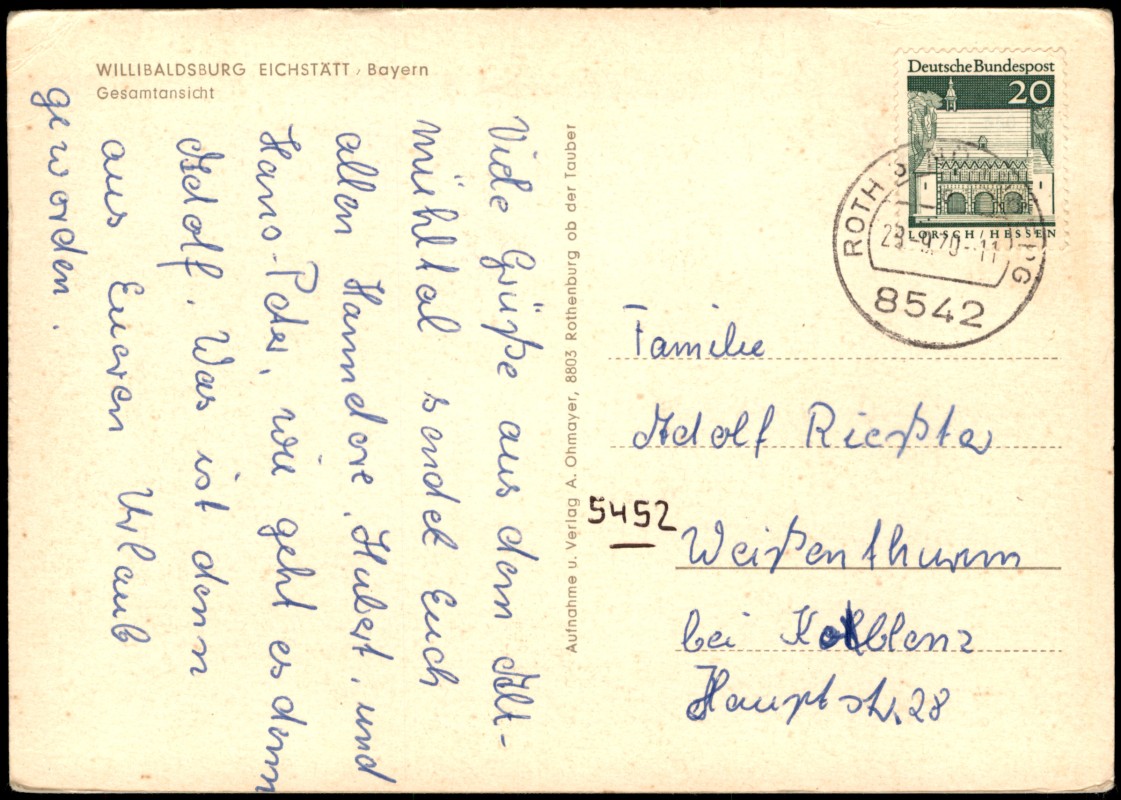 WILLIBALDSBURG EICHSTÄTT, Bayern
Gesamtansicht
Viele Grüße aus dem Alt-
mühltal sendet Euch
allen Hanndore, Hubert, und
Hans-Peter, wie geht es denn
Adolf. Was ist denn
aus Eueren Urlaub
geworden.
Aufnahme u. Verlag A. Ohmayer, 8803 Rothenburg ob der Tauber
Deutsche Bundespost
20
LORSCH/HESSEN
ROTH
-9.70-11
8542
Familie
Adolf Rießta
5452
Weißenthurm
bei Koblenz
Hauptstr. 28